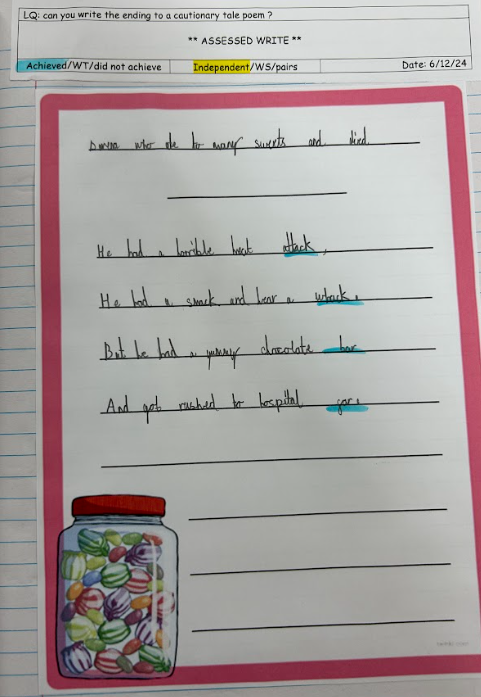 LQ: can you write the ending to a cautionary tale poem ?
** ASSESSED WRITE **
Achieved/WT/did not achieve Independent/WS/pairs Date: 6/12/24
who ate to many sweets and died
He had a horrible heat attack,
He had a snack and hear a whack.
But he had a yummy chocolate bar
And got rushed to hospital gar.